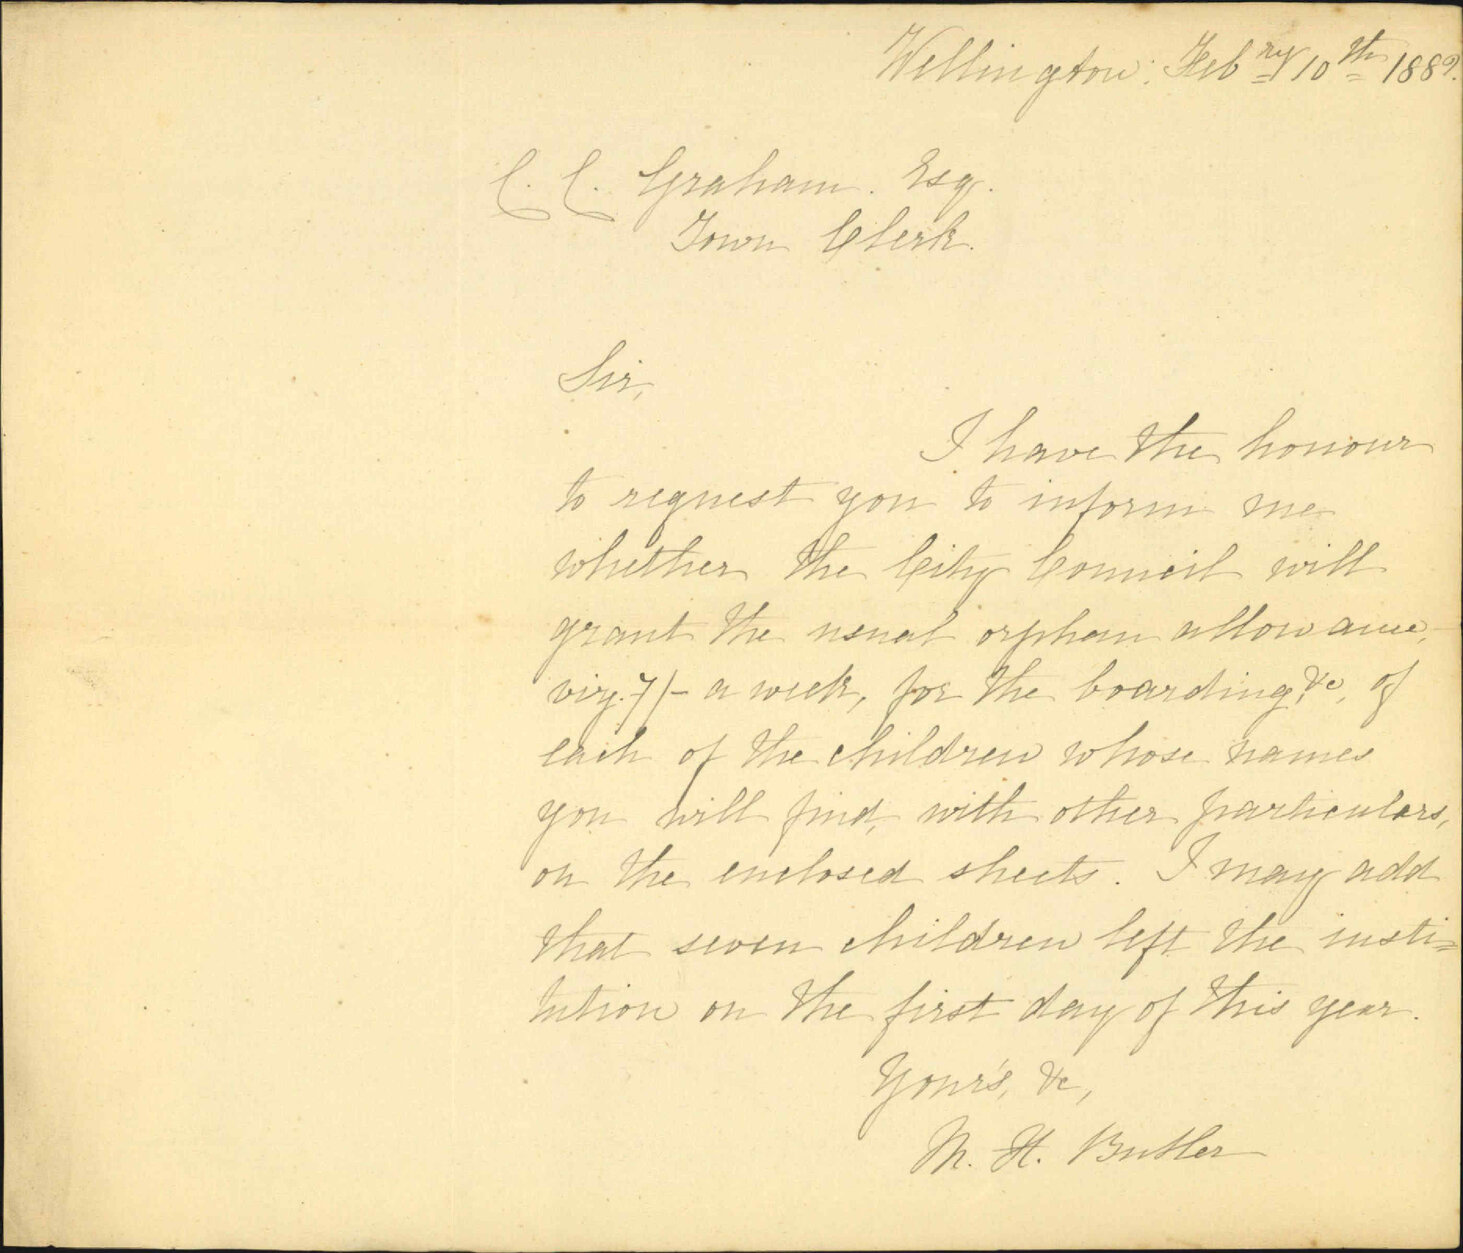 Wellington: Febry 10th 1889.
C. C. Graham. Esq.
Town Clerk.
Sir,
I have the honour
to request you to inform me
whether the City Council will
grant the usual orphan allowance,
viz. 7/- a week, for the boarding, &c, of
each of the children whose names
you will find, with other particulars,
on the enclosed sheets. I may add
that seven children left the insti=
tution on the first day of this year.
Your's, &c,
M. H. Butler